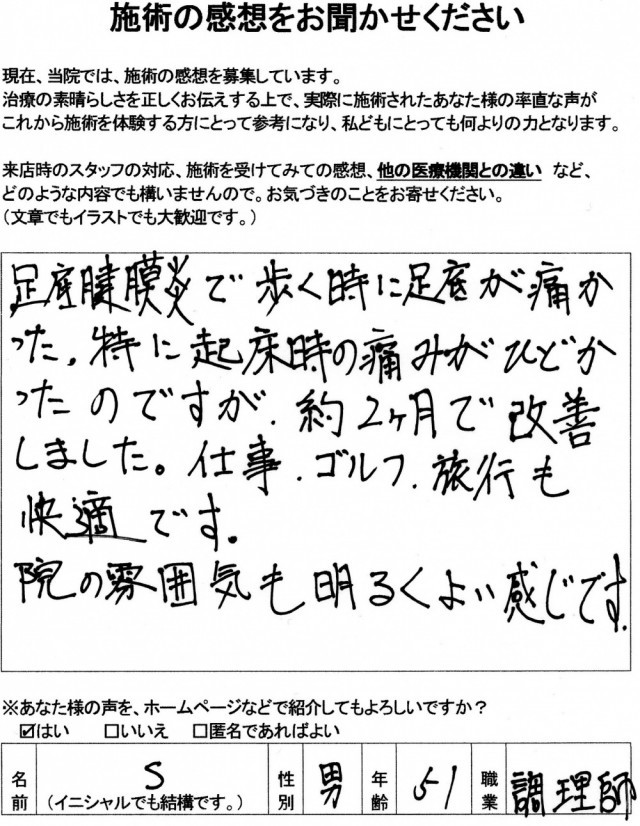 施術の感想をお聞かせください
現在、当院では、施術の感想を募集しています。
治療の素晴らしさを正しくお伝えする上で、実際に施術されたあなた様の率直な声が
これから施術を体験する方にとって参考になり、私どもにとっても何よりの力となります。
来店時のスタッフの対応、施術を受けてみての感想、他の医療機関との違い など、
どのような内容でも構いませんので。お気づきのことをお寄せください。
(文章でもイラストでも大歓迎です。)
足底腱膜炎で歩く時に足底が痛か
った。特に起床時の痛みがひどか
ったのですが、約2ヶ月で改善
しました。仕事、ゴルフ、旅行も
快適です。
院の雰囲気も明るくよい感じです。
※あなた様の声を、ホームページなどで紹介してもよろしいですか?
☑はい □いいえ □匿名であればよい
名前 S (イニシャルでも結構です。) 性別 男 年齢 51 職業 調理師